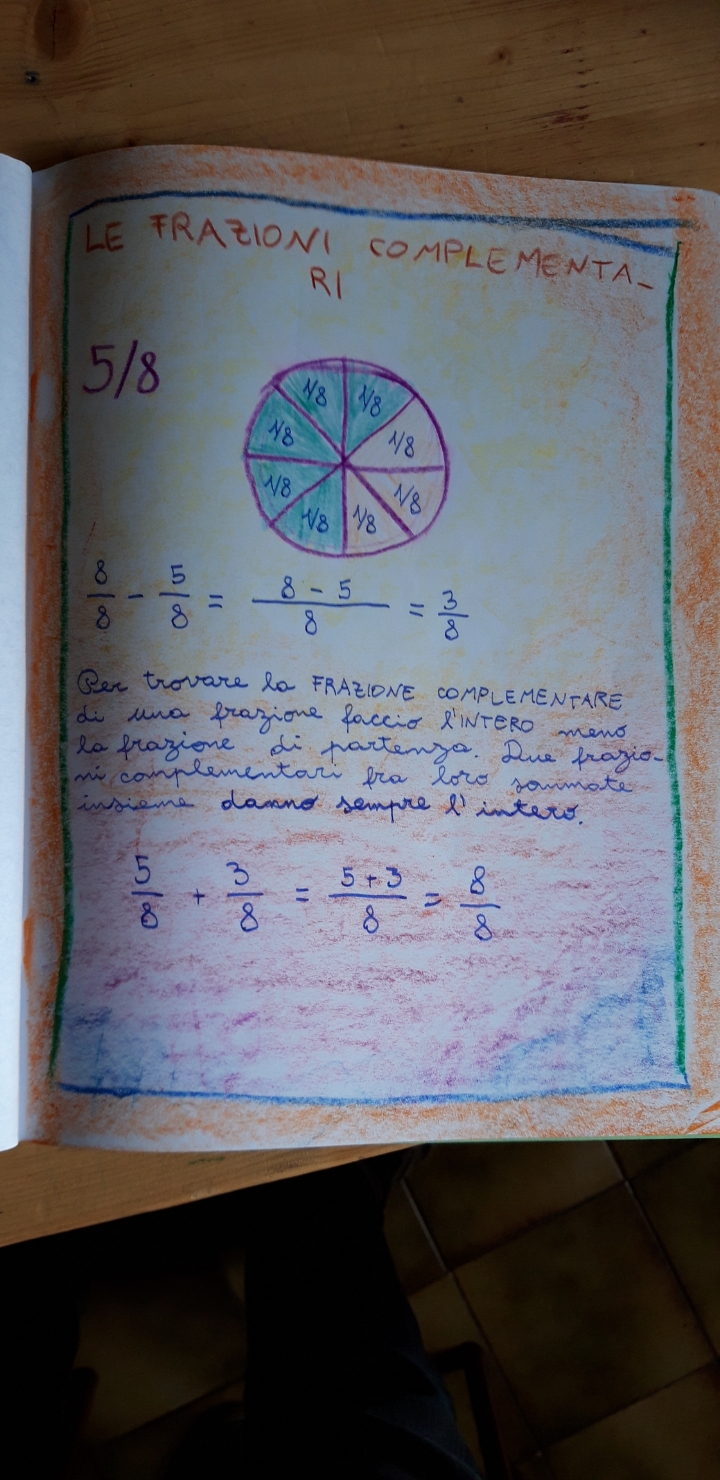 LE FRAZIONI COMPLEMENTA-
RI
5/8
1/8 1/8
1/8 1/8
1/8 1/8
1/8 1/8
8/8 - 5/8 = (8 - 5)/8 = 3/8
Per trovare la FRAZIONE COMPLEMENTARE
di una frazione faccio l'INTERO meno
la frazione di partenza. Due frazio-
ni complementari fra loro sommate
insieme danno sempre l'intero.
5/8 + 3/8 = (5+3)/8 = 8/8